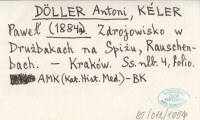 DÖLLER Antoni, KÉLER
Paweł (1884). Zdrojowisko w
Drużbakach na Spiżu, Rauschen-
bach. — Kraków. Ss. nlb. 4, folio.
AMK (Kat. Hist. Med.) - BK